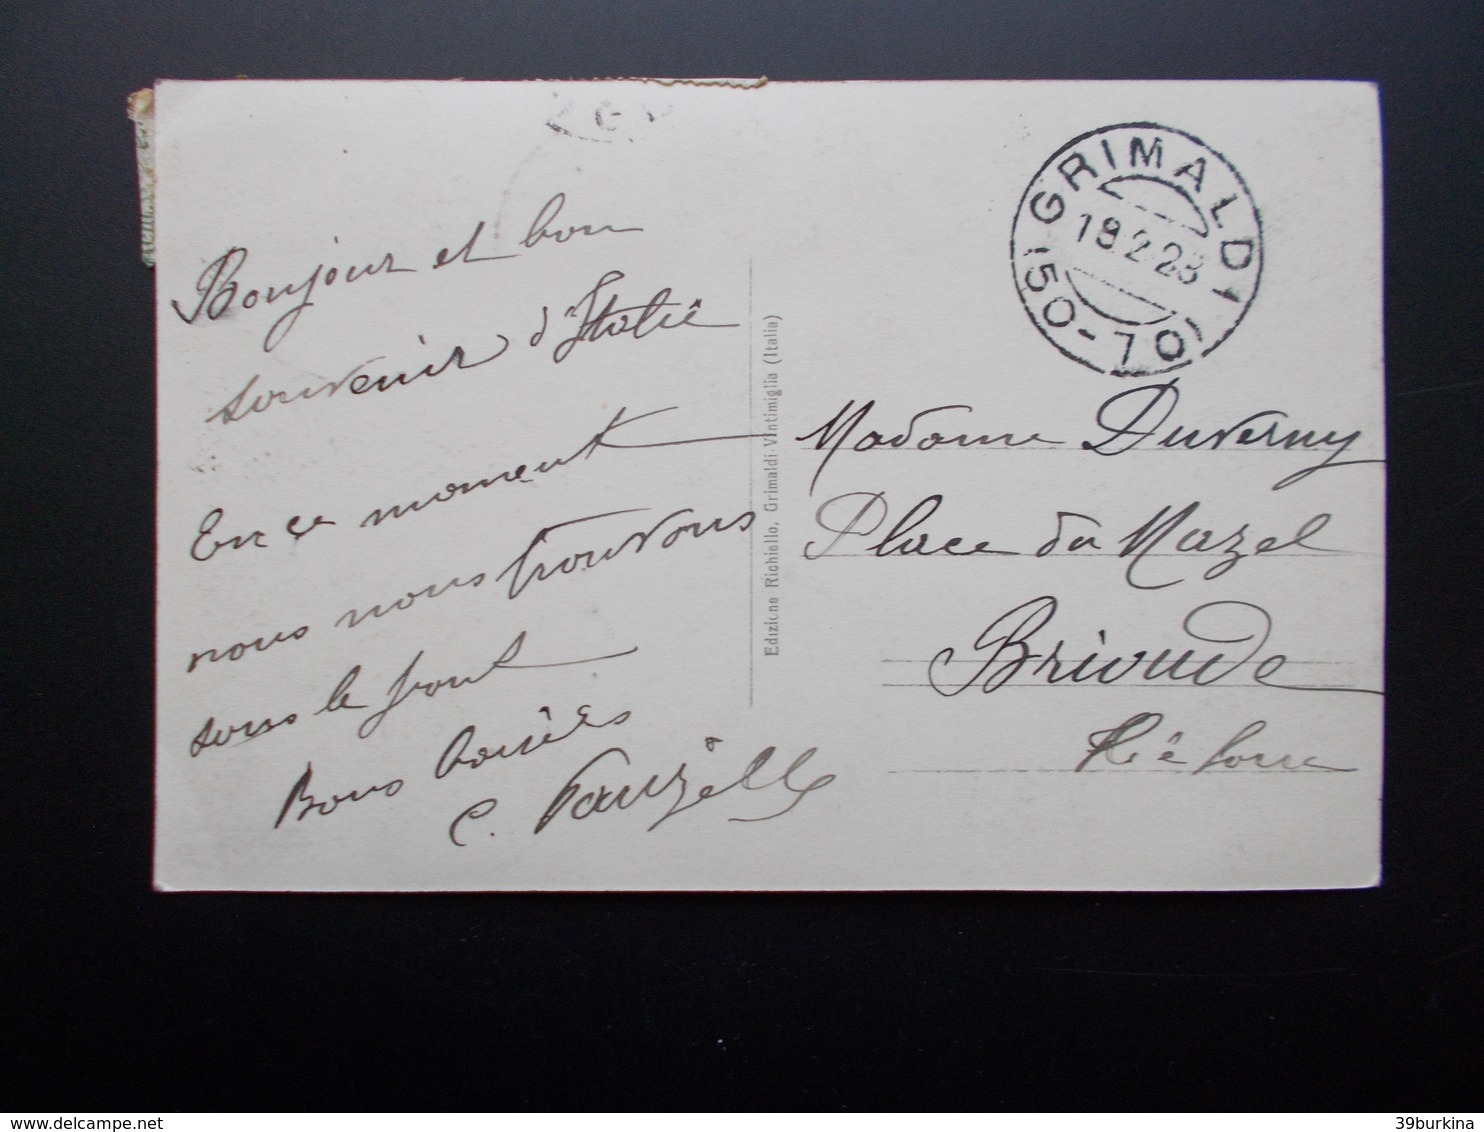 Bonjour et bon
souvenir d'Italie
En ce moment
nous nous trouvons
sous le pont
Bons baisers
C.
Edizione Richiello, Grimaldi-Vintimiglia (Italia)
GRIMALDI
18.2.28
(50-10)
Madame Duverny
Place du Mazel
Brioude
Hte Loire
delcampe.net
39burkina